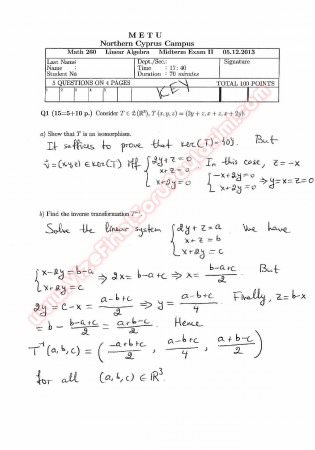 M E T U
Northern Cyprus Campus
Math 260 Linear Algebra Midterm Exam II 05.12.2013
Last Name :
Name :
Student No :
Dept./Sec.:
Time : 17: 40
Duration : 70 minutes
Signature
5 QUESTIONS ON 4 PAGES
TOTAL 100 POINTS
1 2 3 4 5
KEY
Q1 (15=5+10 p.) Consider T ∈ L(ℝ³), T(x, y, z) = (2y + z, x + z, x + 2y).
a) Show that T is an isomorphism.
It suffices to prove that ker(T) = {0}. But
v⃗ = (x,y,z) ∈ ker(T) iff { 2y+z=0 x+z=0 x+2y=0. In this case, z=-x
{ -x+2y=0 x+2y=0 ⇒ y=x=z=0
b) Find the inverse transformation T⁻¹.
Solve the linear system { 2y+z=a x+z=b x+2y=c. We have
{ x-2y=b-a x+2y=c ⇒ 2x=b-a+c ⇒ x= (b-a+c)/2. But
2y = c-x = (a-b+c)/2 ⇒ y= (a-b+c)/4. Finally, z=b-x
= b - (b-a+c)/2 = (a+b-c)/2. Hence
T⁻¹(a,b,c) = ( (-a+b+c)/2 , (a-b+c)/4 , (a+b-c)/2 )
for all (a,b,c) ∈ ℝ³.